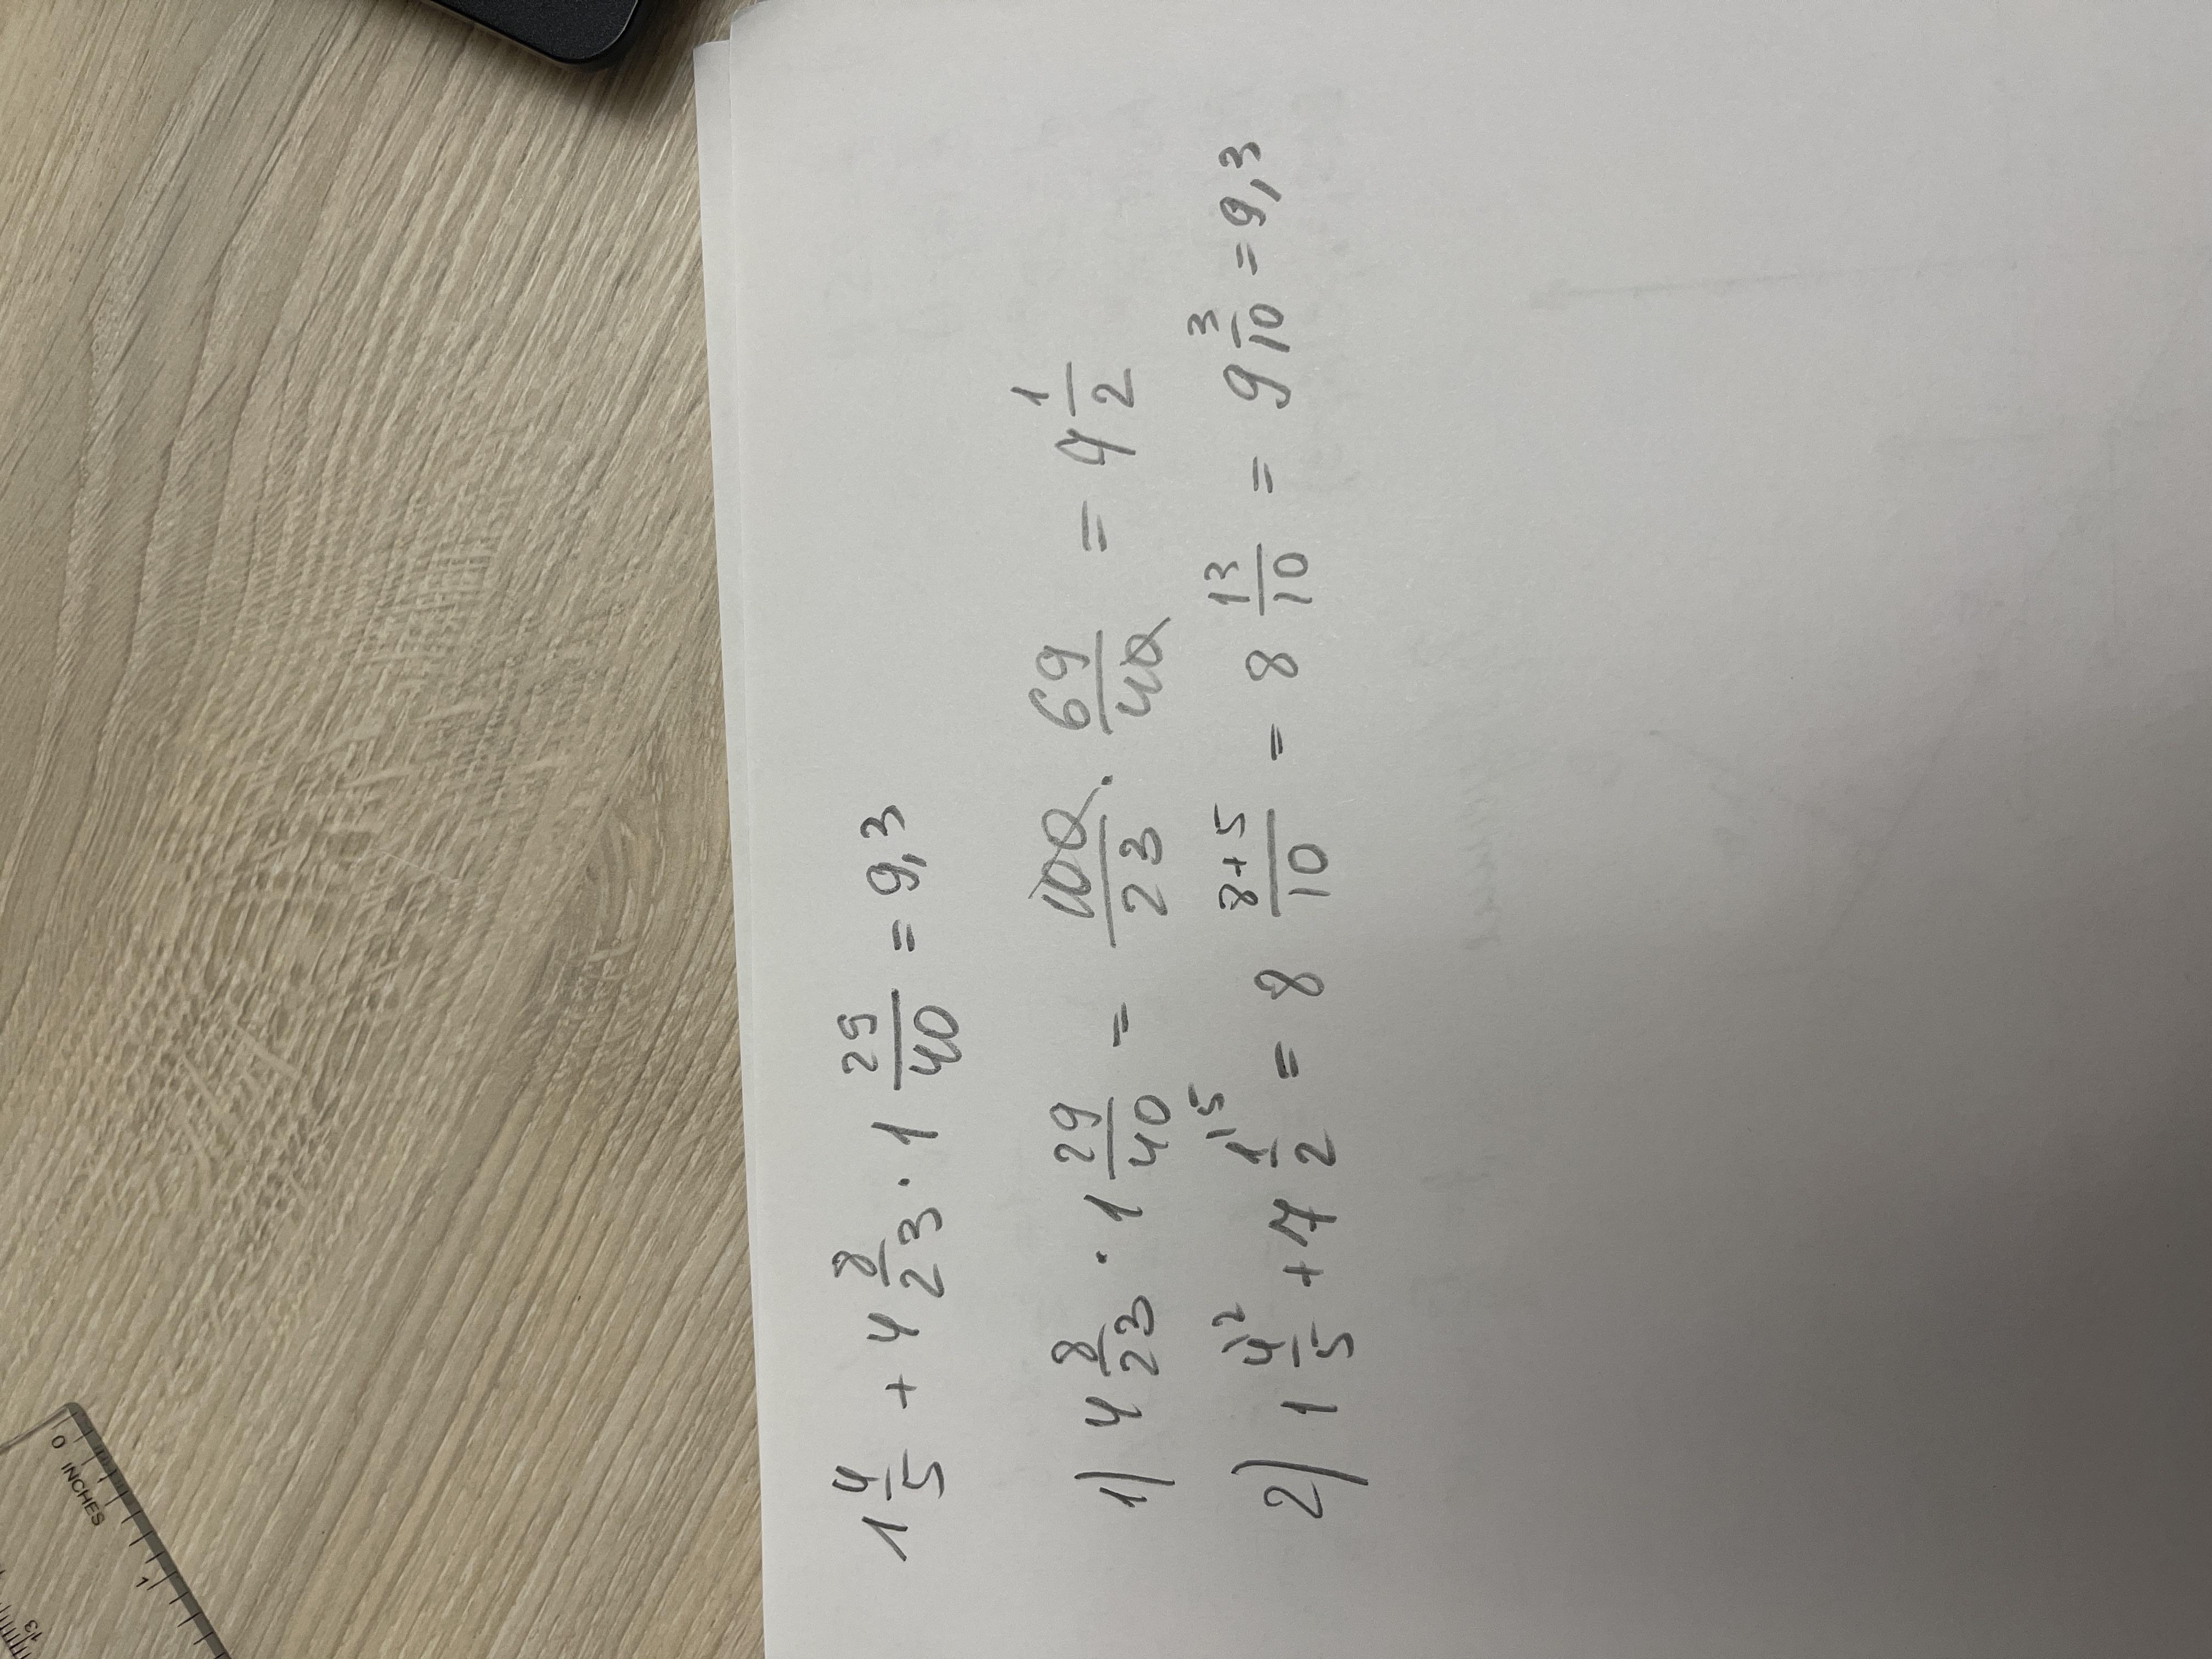 1 4/5 + 4 8/23 · 1 29/40 = 9,3
1) 4 8/23 · 1 29/40 = 100/23 · 69/40 = 7 1/2
2) 1 4\2/5 + 7 1\5/2 = 8 8+5/10 = 8 13/10 = 9 3/10 = 9,3
0
INCHES
1
13